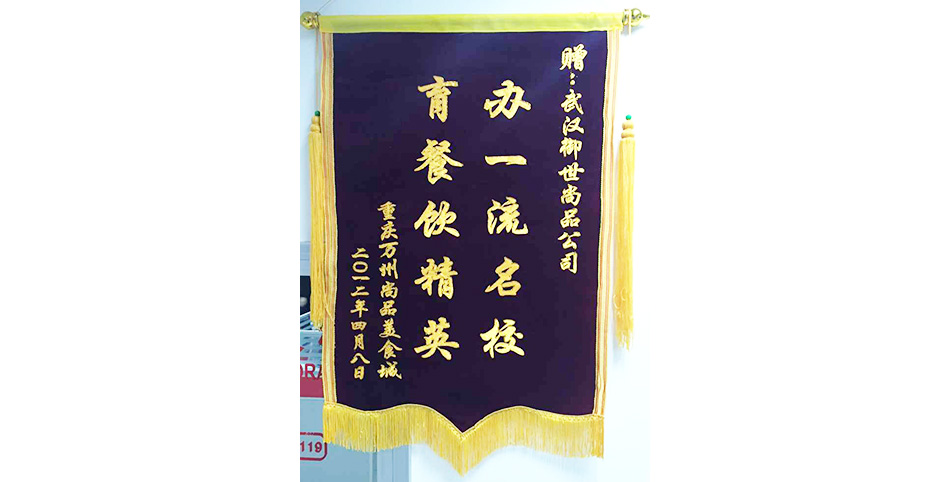 赠：武汉御世尚品公司
办一流名校
育餐饮精英
重庆万州尚品美食城
二〇一二年四月八日
ORA
119